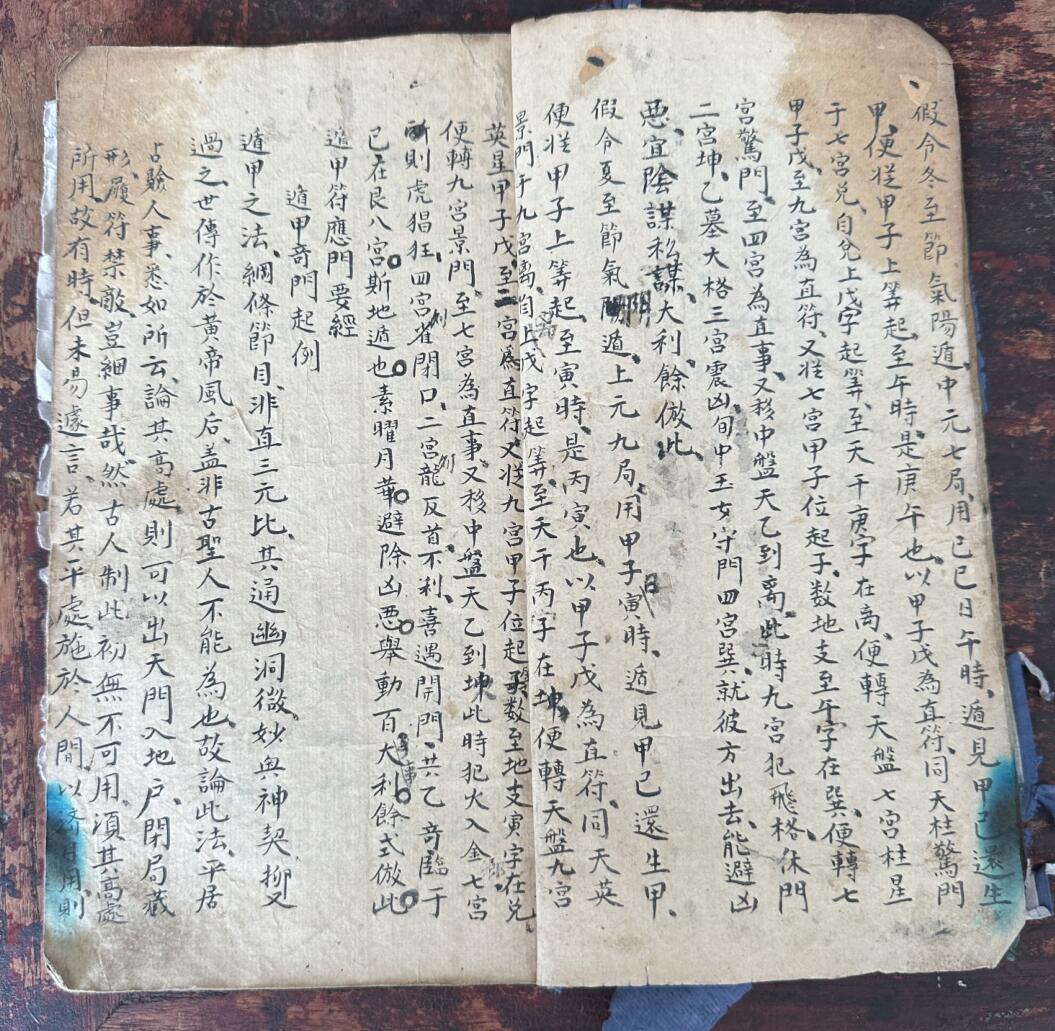 假令冬至節氣陽遁、中元七局、用己巳日午時、遁見甲己還生
甲、便從甲子上筭起、至午時、是庚午也、以甲子戊為直符、同天柱驚門
于七宮兌、自兌上戊字起筭、至天干庚字在离、便轉天盤七宮柱星
甲子戊、至九宮為直符、又從七宮甲子位起子、数地支至午字在巽、便轉七
宮驚門、至四宮為直事、又移中盤天乙到离、此時九宮犯飛格、休門
二宮坤、乙墓大格、三宮震凶、旬中玉女守門、四宮巽、就彼方出去、能避凶
惡、宜陰謀私謀、大利、餘倣此、
假令夏至節氣遁、上元九局、用甲子日寅時、遁見甲己還生甲、
便從甲子上筭起、至寅時、是丙寅也、以甲子戊為直符、同天英
景門于九宮离、自上戊字起筭、至天干丙字在坤、便轉天盤九宮
英星甲子戊、至二宮為直符、又從九宮甲子位起子、数至地支寅字在兌
便轉九宮景門、至七宮為直事、又移中盤天乙到坤、此時犯火入金、七宮
所則虎猖狂、四宮雀閉口、二宮龍反首不利、喜遇開門、共乙奇臨于
已在艮八宮、斯地遁也、素曜月華、避除凶惡、舉動百事大利、餘式倣此
遁甲符應門要經
遁甲奇門起例
遁甲之法、綱條節目、非直三元比、其通幽洞微、妙與神契、抑又
過之、世傳作於黃帝風后、盖非古聖人不能為也、故論此法、平居
占驗人事、悉如所云、論其高處、則可以出天門、入地户、閉局藏
形、履符禁敵、豈細事哉、然古人制此、初無不可用、須其高處
所用、故有時、但未易遽言、若其平處施於人間、以济日用、則